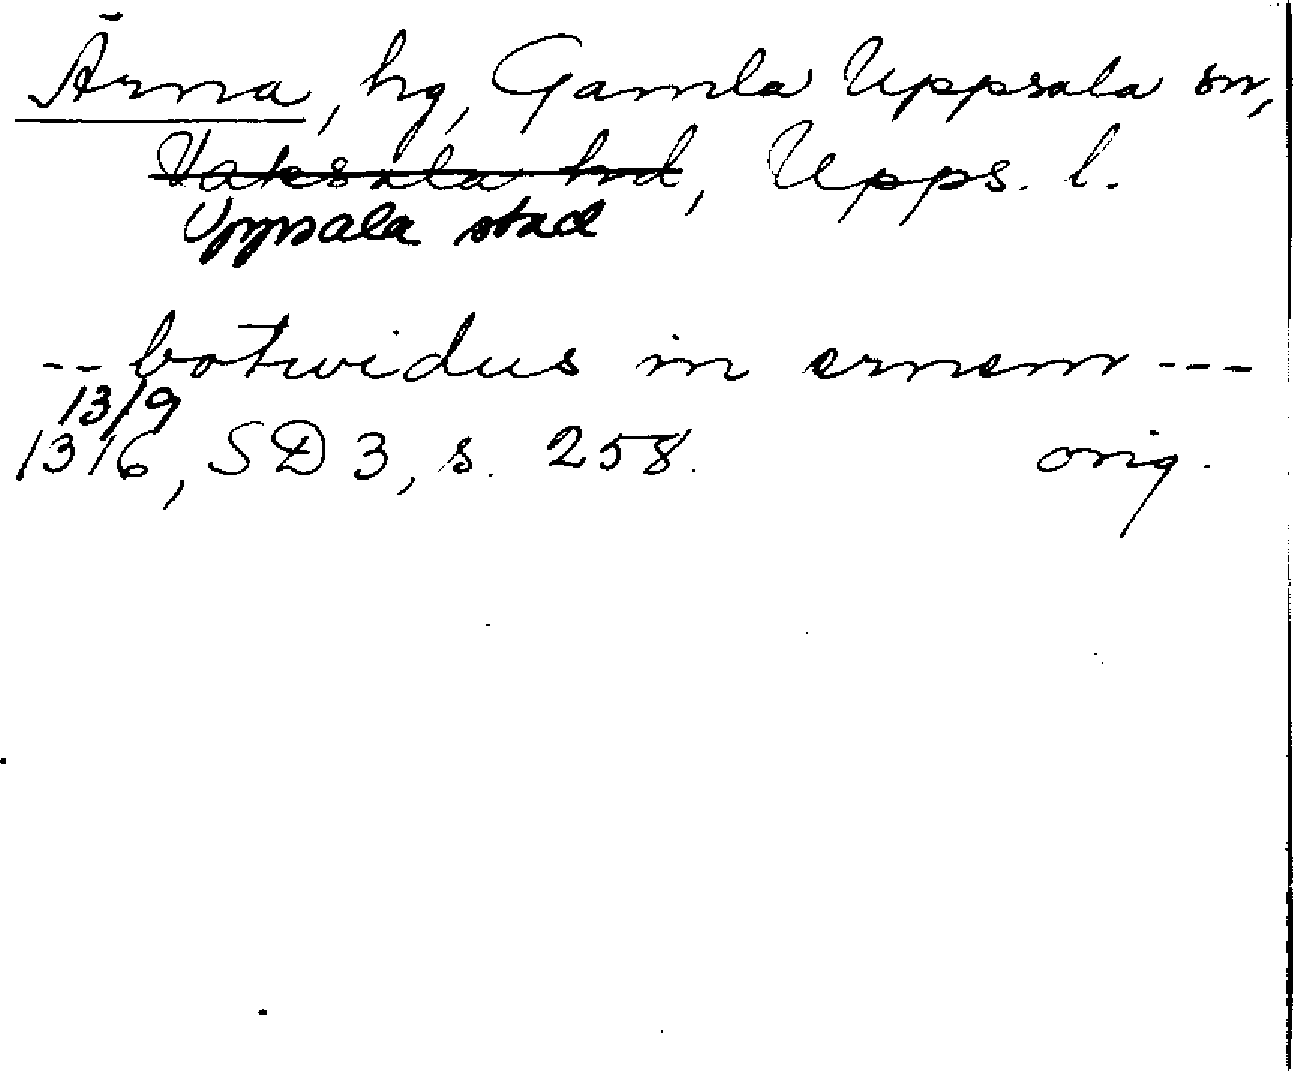 Ärna, hg, Gamla Uppsala sn,
Vaksala hrd, Upps. l.
Uppsala stad
-- botwidus in ernem ---
13/9
1316, SD 3, s. 258. orig.